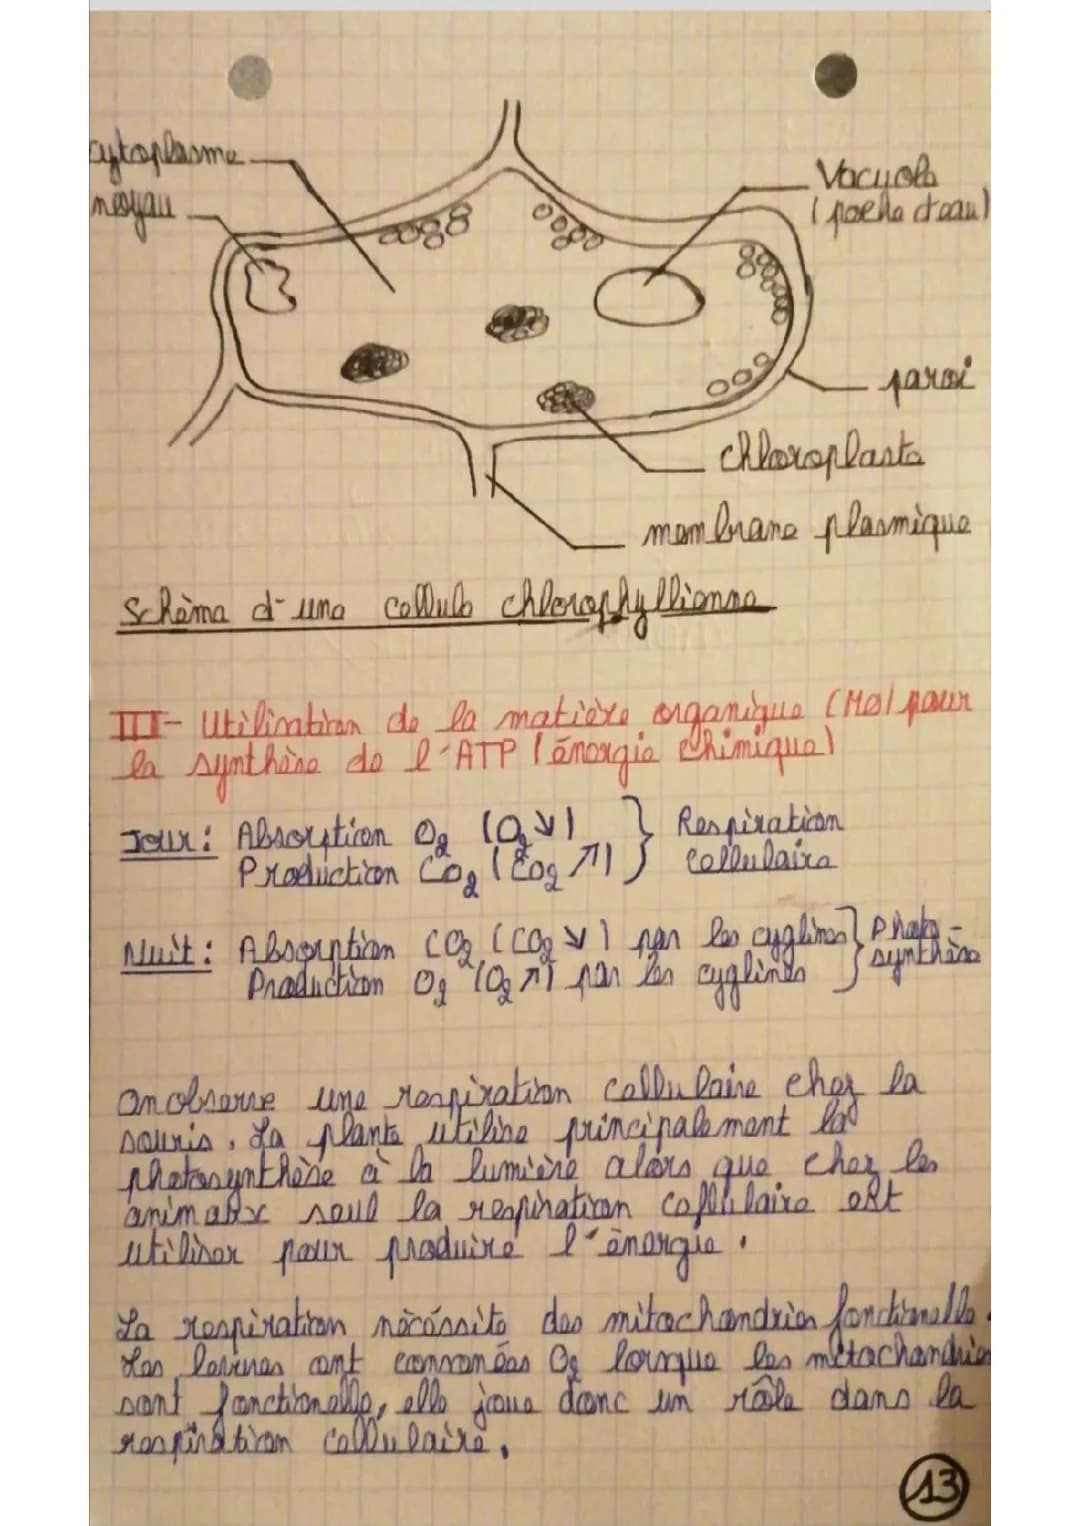 cytoplasme
noyau
Vacuole
(poche d'eau)
paroi
chloroplaste
membrane plasmique
Schéma d'une cellule chlorophyllienne
III- Utilisation de la matière organique (MO) pour
la synthèse de l'ATP (énergie chimique)
Jour: Absorption O2 (O2 ↘) } Respiration
Production CO2 (CO2 ↗) } cellulaire
Nuit: Absorption CO2 (CO2 ↘) par les cyglines } Photo-
Production O2 (O2 ↗) par les cyglines } synthèse
On observe une respiration cellulaire chez la
souris. La plante utilise principalement la
photosynthèse à la lumière alors que chez les
animaux seul la respiration cellulaire est
utiliser pour produire l'énergie.
La respiration nécéssite des mitochondries fonctionelle.
Les levures ont consomées O2 lorsque les mitochondries
sont fonctionelle, elle joue donc un rôle dans la
respiration cellulaire.
13